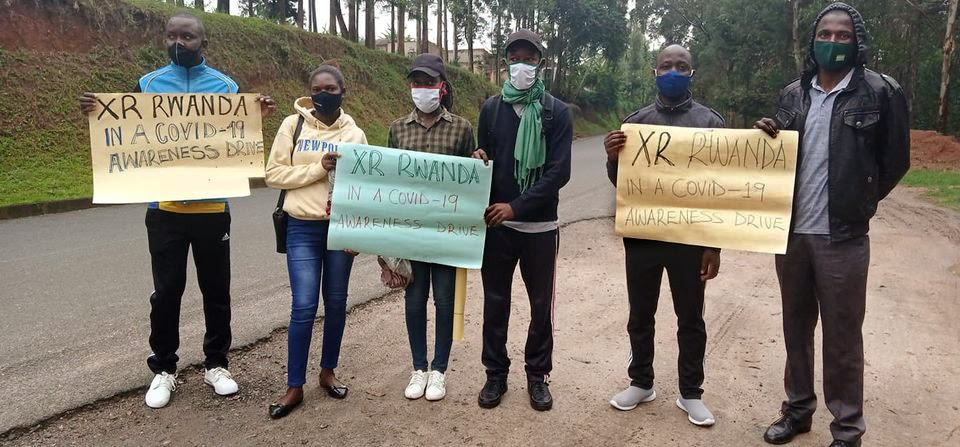 XR RWANDA
IN A COVID-19
AWARENESS DRIVE
NEWPO
XR RWANDA
IN A COVID-19
AWARENESS DRIVE
XR RWANDA
IN A COVID-19
AWARENESS DRIVE